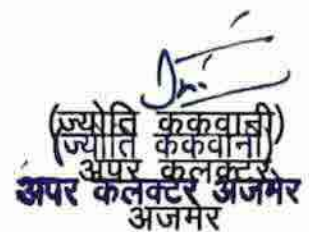 (ज्योति ककवानी)
(ज्योति ककवानी)
अपर कलक्टर
अपर कलक्टर अजमेर
अजमेर